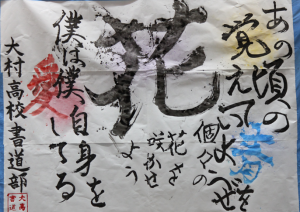 あの頃の
青を
覚えていようぜ
個々の
花を
咲かせ
よう
花
僕は僕自身を
愛してる
大村高校書道部